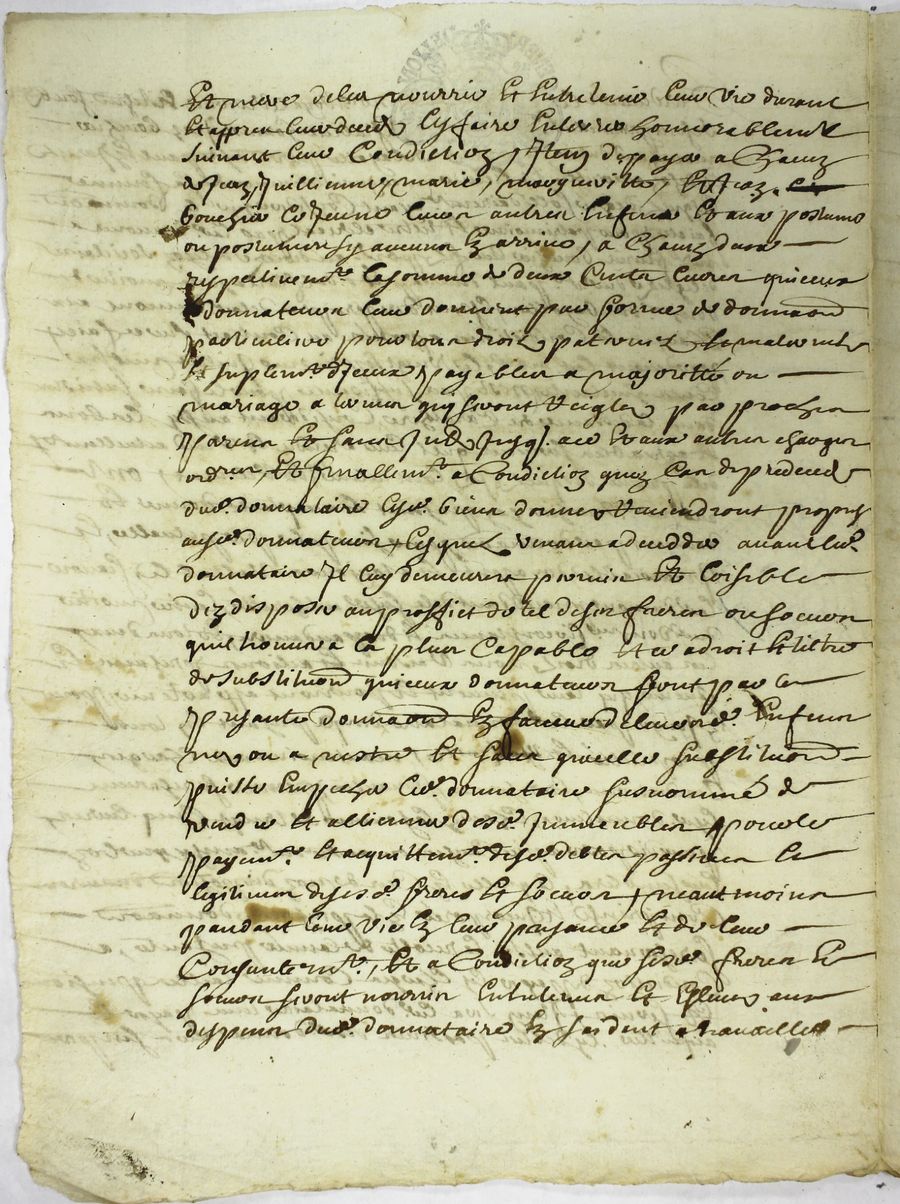 Et mere deles nourrir Et Entretenir leur vie durant
Et appres leur deces les faire Enterrer honnorablemt
suivant leur Condiction, Item de payer a Chacuns
de Jean, Guillienne, marie, margueritte, Et Jean
le Jeune leurs autres Enfans Et aux postumes
ou postumes sy aucuns En arrive, a Chacun deux
respectivemt. la somme de deux Cents livres que iceux
donnateurs leur donnent par forme de donnaon
particuliere pour tous droits paternels Et maternels
Et suplemt. d'Iceux payables a majoritté ou
mariage a termes quy seront Reigles par proches
parens Et sans Et aux autres charges
ord.res, Et finallemt. a Condiction quen Cas de predeces
dud. donnataire lesd. biens donnes Reviendront propres
ausd. donnateurs, lesquels venant a decedder avant led.
donnataire Il luy demeurera permis Et loisible
den disposer au proffict de tel de ses freres ou soeurs
quil trouvera le plus Capable Et ce a droit Et tiltre
de substituon que iceux donnateurs font par la
presante donnaon En faveur de leursd. Enfens
nes ou a naitre Et sans quicelle substituon
puisse Empecher led. donnataire susnommé de
vendre Et alliener desd. Immeubles pour le
payemt. Et acquittemt. desd. debtes passives Et
legitimes de sesd. freres Et soeurs, neantmoins
pandant leur vie En leur presance Et de leur
Consantemt., Et a Condiction que sesd. freres Et
soeurs seront nourris Entretenus Et Esleves aux
despens dud. donnataire En saident a travailler